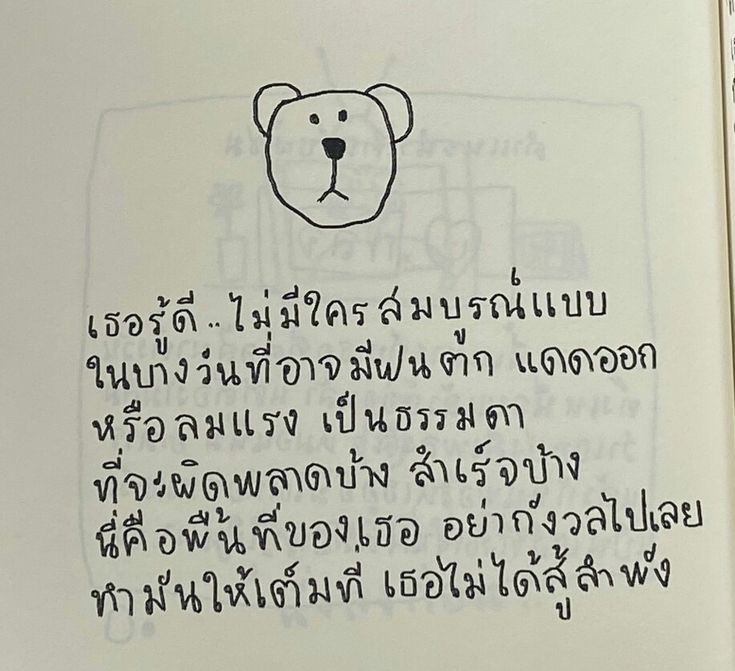 เธอรู้ดี..ไม่มีใครสมบูรณ์แบบ
ในบางวันที่อาจมีฝนตก แดดออก
หรือลมแรง เป็นธรรมดา
ที่จะผิดพลาดบ้าง สำเร็จบ้าง
นี่คือพื้นที่ของเธอ อย่ากังวลไปเลย
ทำมันให้เต็มที่ เธอไม่ได้สู้ลำพัง